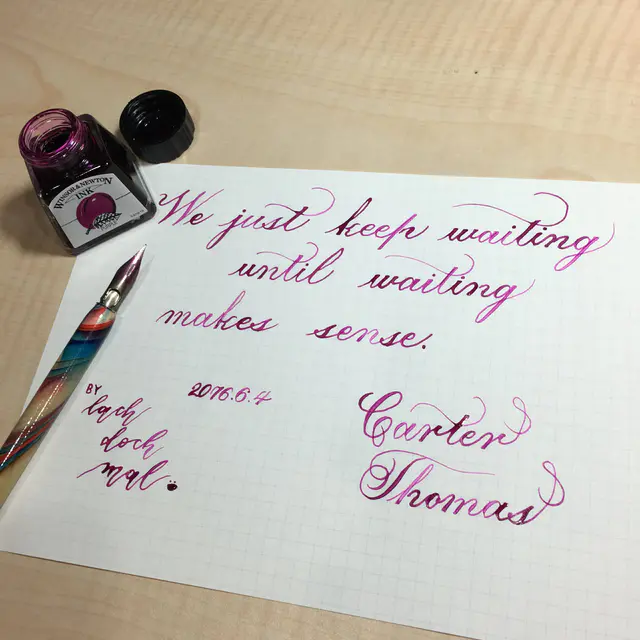 WINSOR & NEWTON
INK
We just keep waiting
until waiting
makes sense.
BY
lach
doch
mal
2016.6.4
Carter
Thomas